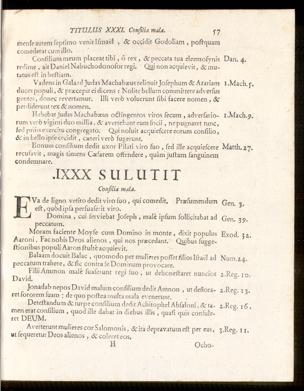 TITULUS XXXI. Consilia mala. 57
mense autem septimo venit Ismaël, & occidit Godoliam, postquam
comederat cum illo.
Consilium meum placeat tibi, ô rex, & peccata tua eleemosynis Dan. 4.
redime, ait Daniel Nabuchodonosor regi. Qui non acquievit, & mu-
tatus est in bestiam.
Vadens in Galaad Judas Machabæus reliquit Josephum & Azariam 1. Mach. 5.
duces populi, & præcepit eis dicens: Nolite bellum committere adversus
gentes, donec revertamur. Illi verò voluerunt sibi facere nomen, &
perdiderunt rex & nomen.
Habebat Judas Machabæus octingentos viros secum, adversario- 1. Mach. 9.
rum verò viginti duo millia, & avertebant eum sui, ne pugnaret nunc,
sed prius exercitu congregato. Qui noluit acquiescere eorum consilio,
& in bello ipse concidit, cæteri verò fugerunt.
Bonum consilium dedit uxor Pilati viro suo, sed ille acquiescere Matth. 27.
recusavit, magis timens Cæsarem offendere, quàm justum sanguinem
condemnare.
.IXXX SULUTIT
Consilia mala.
EVa de ligno vetito dedit viro suo, qui comedit. Præsumendum Gen. 3.
est, quòd ipsa persuaserit viro.
Domina, cui serviebat Joseph, malè ipsum sollicitabat ad Gen. 39.
peccatum.
Moram faciente Moyse cum Domino in monte, dixit populus Exod. 32.
Aaroni, Fac nobis Deos alienos, qui nos præcedant. Quibus sugge-
stionibus populi Aaron stultè acquievit.
Balaam docuit Balac, quomodo per mulieres posset filios Israël ad Num. 24.
peccatum trahere, & sic contra se Dominum provocare.
Filii Ammon malè suaserunt regi suo, ut dehonestaret nuncios 2. Reg. 10.
David.
Jonadab nepos David malum consilium dedit Amnon, ut deflora- 2. Reg. 13.
ret sororem suam; de quo postea multa mala evenerunt.
Detestandum & turpe consilium dedit Achitophel Absaloni, & ta- 2. Reg. 16.
men erat consilium, quod ille dabat in diebus illis, quasi quis consule-
ret DEUM.
Averterunt mulieres cor Salomonis, & ita depravatum est per eas, 3. Reg. 11.
ut sequeretur Deos alienos, & coleret eos.
H Ocho-